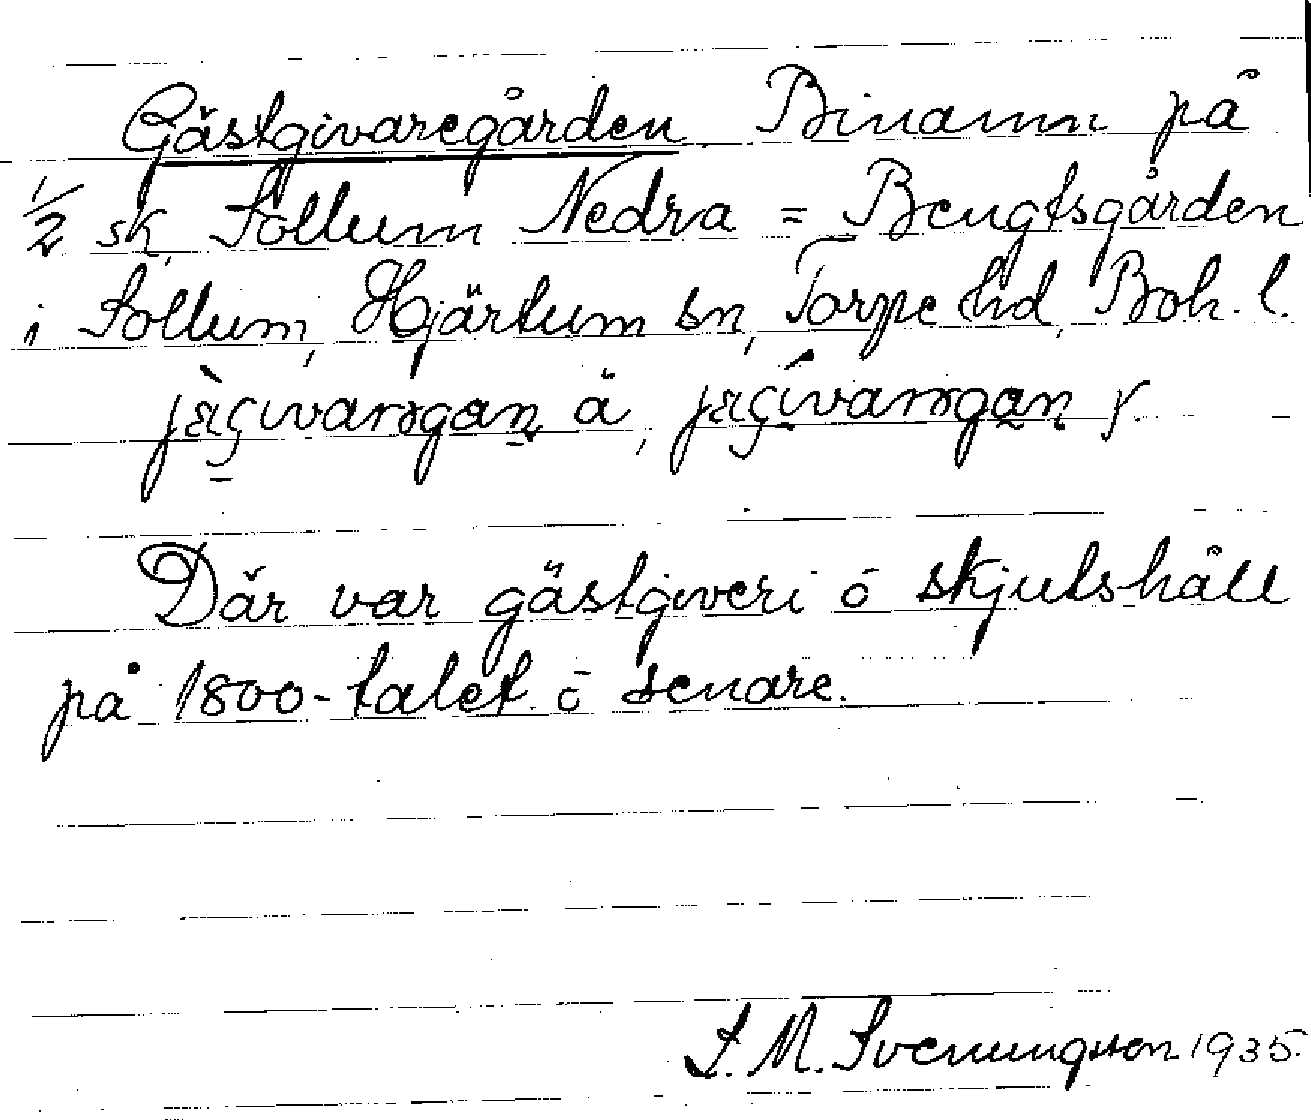 Gästgivaregården. Binamn på
1/2 sk. Sollum Nedra = Bengtsgården
i Sollum, Hjärtum sn, Torpe hd, Boh. l.
å,
Där var gästgiveri ō skjutshåll
på 1800-talet ō senare.
S. M. Svenungsson 1935.